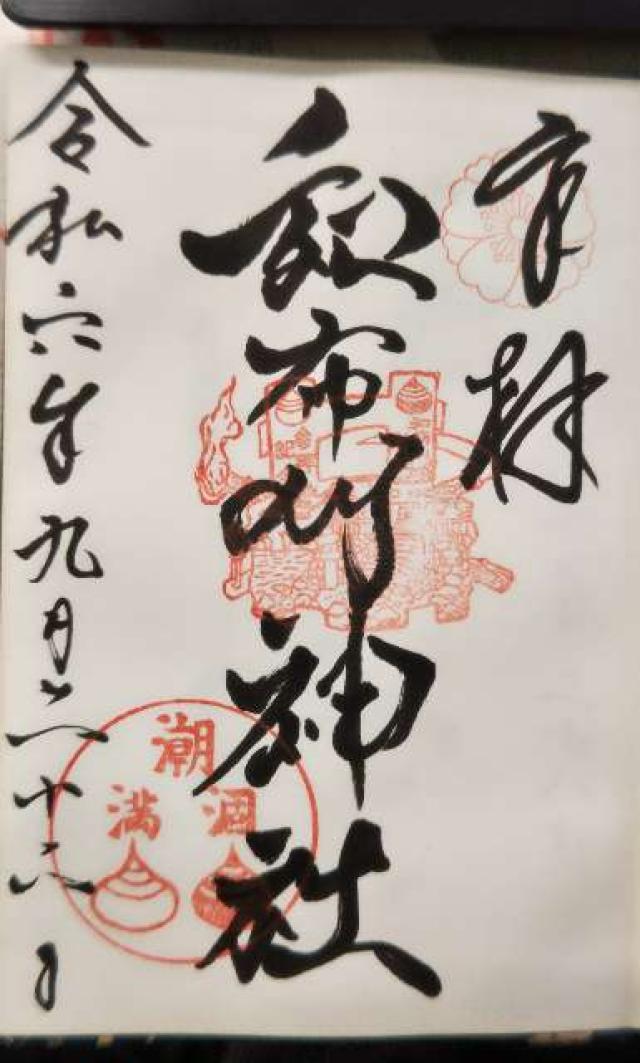 奉拝
和布刈神社
令和六年九月二十二日
潮
涸
満